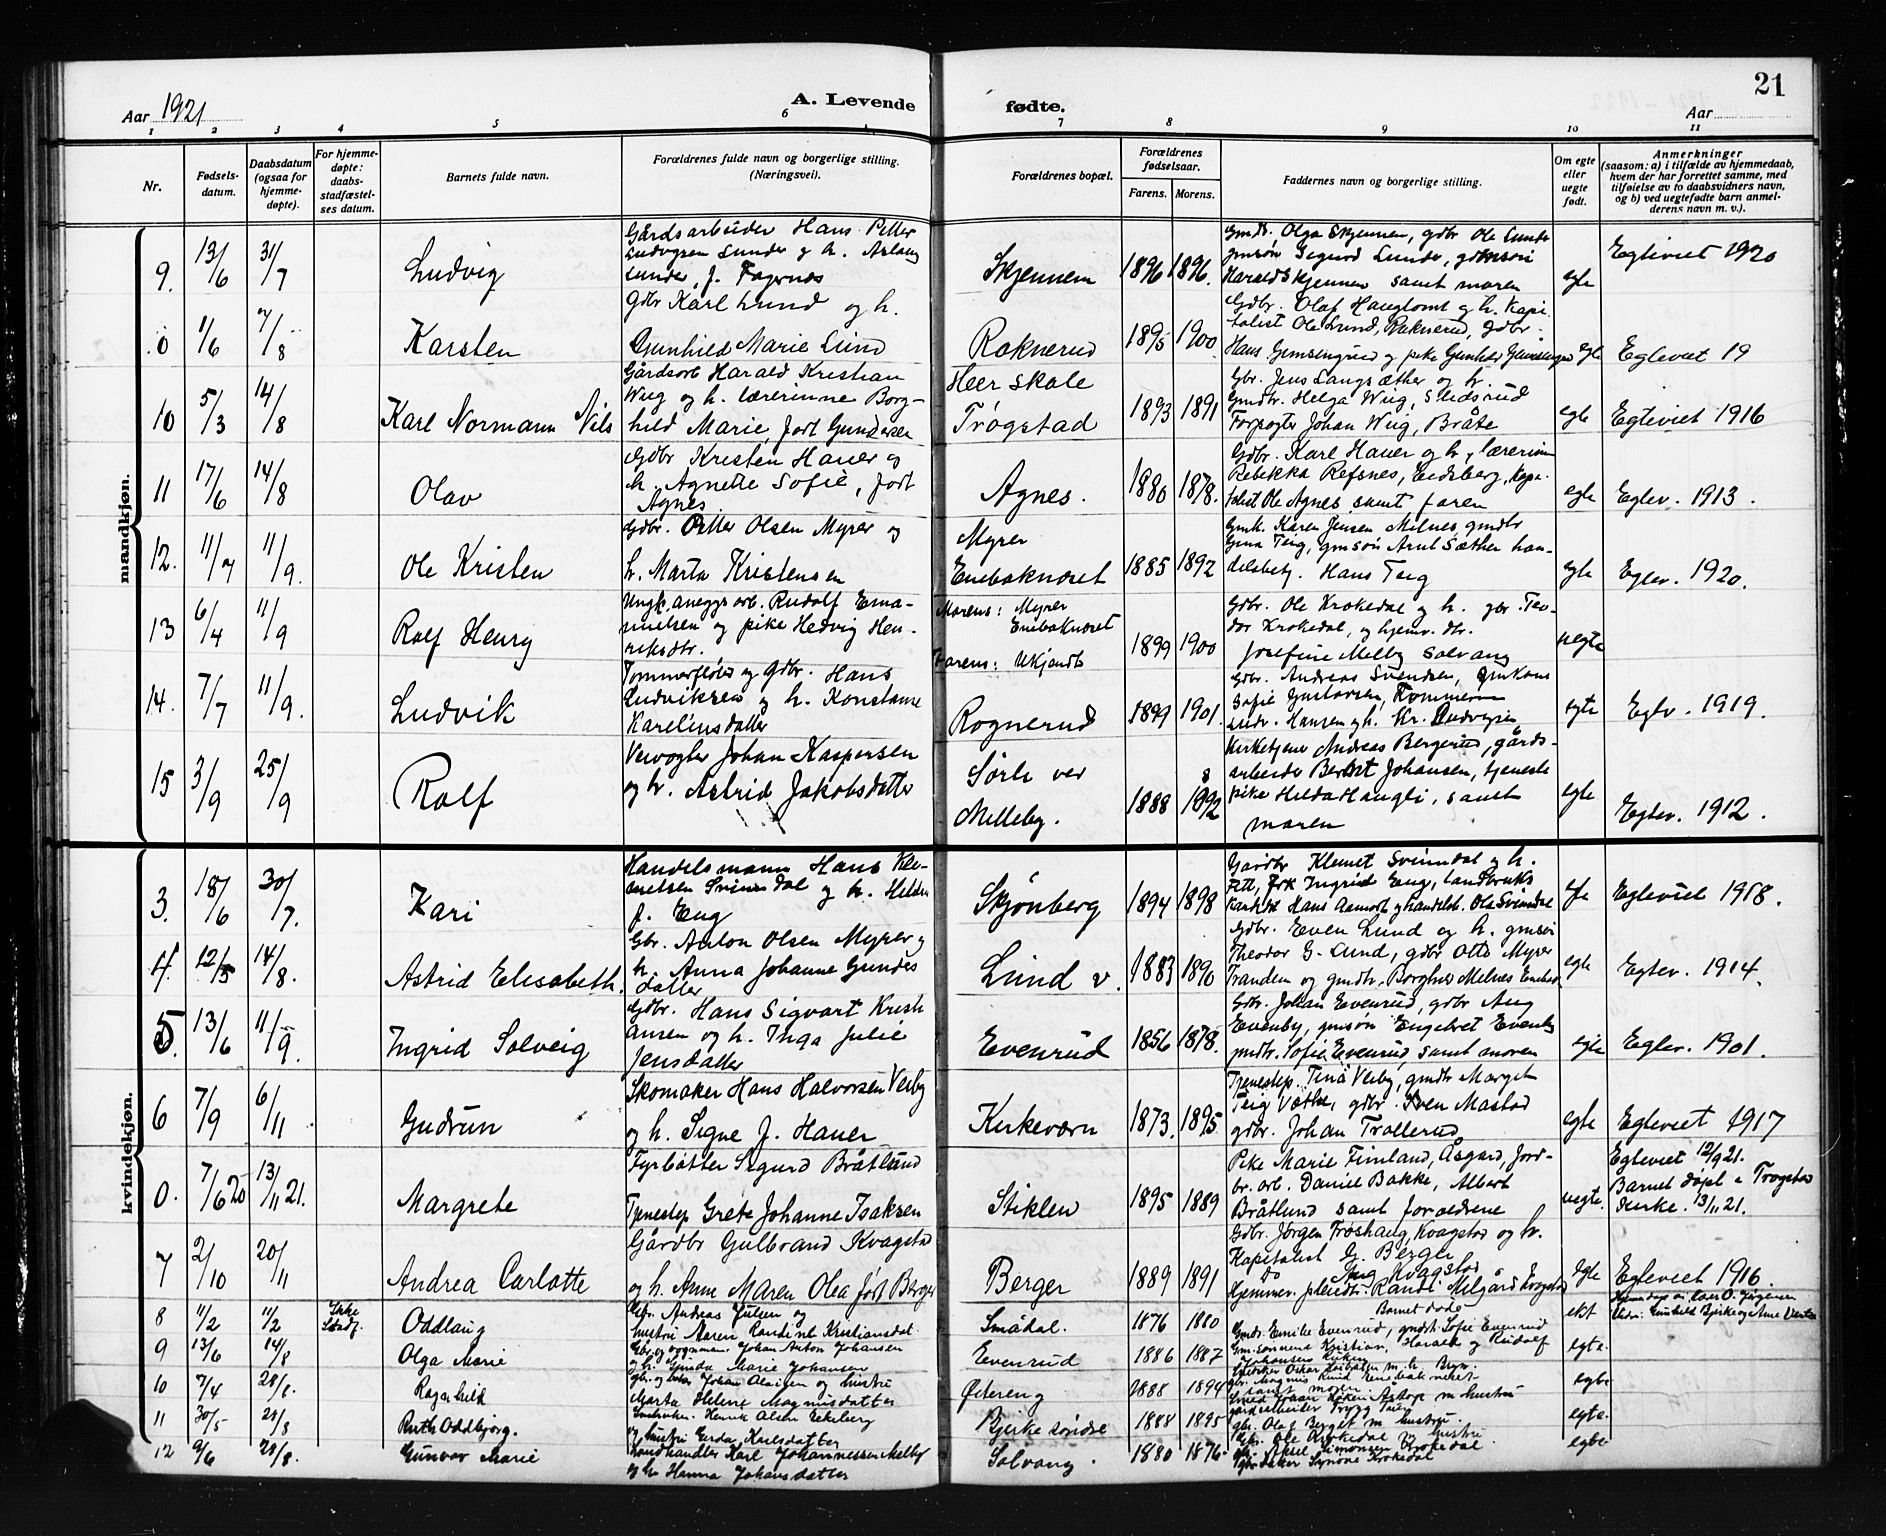 21
Aar 1921
A. Levende fødte.
Aar
1 2 3 4 5 6 7 8 9 10 11
Nr.
Fødsels-
datum.
Daabsdatum
(ogsaa for
hjemme-
døpte).
For hjemme-
døpte:
daabs-
stadfæstel-
ses datum.
Barnets fulde navn.
Forældrenes fulde navn og borgerlige stilling.
(Næringsvei).
Forældrenes bopæl.
Forældrenes
fødselsaar.
Farens. Morens.
Faddernes navn og borgerlige stilling.
Om egte
eller
uegte
født.
Anmerkninger
(saasom: a) i tilfælde av hjemmedaab,
hvem der har forrettet samme, med
tilføielse av to daabsvidners navn,
og b) ved uegtefødte barn anmel-
derens navn m. v.).
mandkjøn.
9. 13/6 31/7 Ludvig
Gårdsarbeider Hans Petter
Ludvigsen Lunder g h. Aslaug
Lunder, f. Fagernes
Skjennem 1896 1896.
Gmdt. Olga Skjennem, gdbr Ole Lunde
gmsøn Sigurd Lunde, gdmsøn
Harald Skjennem samt moren
egte Egteviet 1920
0 1/6 7/8 Karsten
Gdbr Karl Lund og h.
Gunhild Marie Lund
Raknerud 1895 1900
Gdbr. Olaf Haugtomt og h. Kapi-
talist Ole Lund, Raknerud, gdbr.
Hans Gimsengrud g pike Gunhild
egte Egteviet 19
10 5/3 14/8 Karl Normann Nils
Gårdsarb Harald Kristian
Wiig og h. lærerinne Borg-
hild Marie, født Gundersen
Heer skole
Trøgstad 1893 1891
Gbr. Jens Langsæther og h.
Gmdtr. Helga Wiig,
Forpagter Johan Wiig, Bråte
egte Egteviet 1916
11 17/6 14/8 Olav
Gdbr Kristen Hauer og
h. Agnette Sofie, født
Agnes
Agnes. 1880 1878.
Gdbr. Karl Hauer og h, lærerinne
Rebekka Refsnes, Eidsberg, Kapi-
talist Ole Agnes samt faren
egte Egtev. 1913.
12. 11/7 11/9. Ole Kristen
Gdbr. Petter Olsen Myrer og
h. Marta Kristensen
Myrer
Enebaknæset 1885 1892
Gmk. Karen Jensen Milnes gmdtr
Gina Teig, gmsøn Arnt Sæther han-
delsbetj. Hans Teig
egte Egtev. 1920.
13 6/4 11/9 Rolf Henry
Ungk. anlegsarb. Rudolf Ema-
nuelsen og pike Hedvig Hen-
riksdtr.
Morens: Myrer
Enebaknæset
Farens: Ukjendt
1899 1900
Gdbr. Ole Krokedal og h. gbr. Teo-
dor Krokedal, og hjemv. dtr.
Josefine Melby Solvang
uegte
14. 7/7 11/9. Ludvik
Tømmerfløter og Gdbr. Hans
Ludviksen og h. Konstanse
Kareliusdatter
Rognerud 1899 1901.
Gdbr. Andreas Svendsen, Gmkone
Sofie Gustavsen, Tømmerm
Ludv. Hansen og h. Kr. Ludvigsen
egte Egtv. 1919.
15 3/9 25/9 Rolf
Veivogter Johan Kaspersen
og h. Astrid Jakobsdatter
Sørli ved
Melleby. 1888 1892
Kirketjener Andreas Bergerud, gårds-
arbeider Bernt Johansen, tjeneste
pike Hilda Haugli, samt
moren
egte Egtev. 1912.
kvindekjøn.
3. 18/6 30/7. Kari
Handelsmann Hans Kle-
metsen Svinndal og h. Helda
f. Eng
Skjønberg 1894 1898
Gårdbr Klemet Svinndal og h.
Frk Ingrid Eng, landbruks
kand. Hans Aamodt g handelsb. Ole Svindal
egte Egteviet 1918.
4. 12/5 14/8. Astrid Elisabeth.
Gbr. Anton Olsen Myrer g
h. Anna Johanne Gundes
datter
Lund v. 1883 1890
Gdbr. Even Lund og h. gmsøn
Theodor G. Lund, gdbr Otto Myrer
Tranden og gmdtr. Borghild Milnes
egte Egtev. 1914.
5. 13/6 11/9. Ingrid Solveig
Gdbr. Hans Sigvart Kristi-
ansen og h. Inga Julie
Jensdatter
Evenrud 1856 1878.
Gdbr. Johan Evenrud, gdbr Aug
Evenby, gmsøn Engebret Evenby
gmdtr. Sofie Evenrud, samt moren
egte Egtev. 1901.
6 7/9 6/11 Gudrun
Skomaker Hans Halvorsen Veiby
og h. Signe f. Hauer
Kirkeværn 1873. 1895
Tjenestep. Tina Veiby, gmdtr Margit
Teig gdbr. Sven Mastad
gdbr. Johan Trollerud
egte Egteviet 1917
0. 7/6 20 13/11 21. Margrete
Fyrbøtter Sigurd Bråtlund
Tjenestep Grete Johanne Isaksen
Stiklen 1895 1889
Pike Marie Finland, Åsgard, Jord-
br. arb. Daniel Bakke, Albert
Bråtlund samt foreldrene
uegte.
Egteviet 12/9 21.
Barnet døpt i Trøgstad
kirke. 13/11 21.
7 2/10 20/11 Andrea Carlotte
Gårdbr Gulbrand Kvagstad
og h. Anne Maren Olea født Berger
Berger 1889 1891
Gdbr. Jørgen Frøshaug, Kvagstad og h.
Kapitalist G. Berger
do Aug Kvagstad
Hjemmev. Randi Milgård
egte Egteviet 1916.
8 11/2 11/2 Ikke
Stadf. Oddlaug
Gbr. Andreas Julsen og
hustru Maren Randine Kristiansdat.
Smådal. 1876 1880
Barnet døde
ekt
9 13/6 14/8 Olga Marie
Gbr. og bygnman. Johan Anton Johansen
og h. Gunda Marie Johansen
Evenrud 1886 1887
Gmdt. Emilie Evenrud, gmdtr Sofie Evenrud
Gm.sønnene Kristian, Harald og Rudolf
egte.
10 7/4 28/8. Ragnhild
gbr. og Johan Olaisen og hustru
Marta Helene Magnusdatter
Østereng 1888 1894
egte
11 30/5 28/8 Ruth Oddbjørg.
Henrik Olsen Eikeberg
og hustru Gerda Karlsdatter
Bjerke søndre 1888 1895
gbr. Olaf Berget m hustru.
egte.
12 9/6 28/8. Gunvor Marie
Landhandler Karl Johannessen Melby
og h Hanna Johansdatter
Solvang. 1880 1876.
Gbr. Ole Krokedal og hustru
gbr. Aksel Simonsen Krokedal
egte